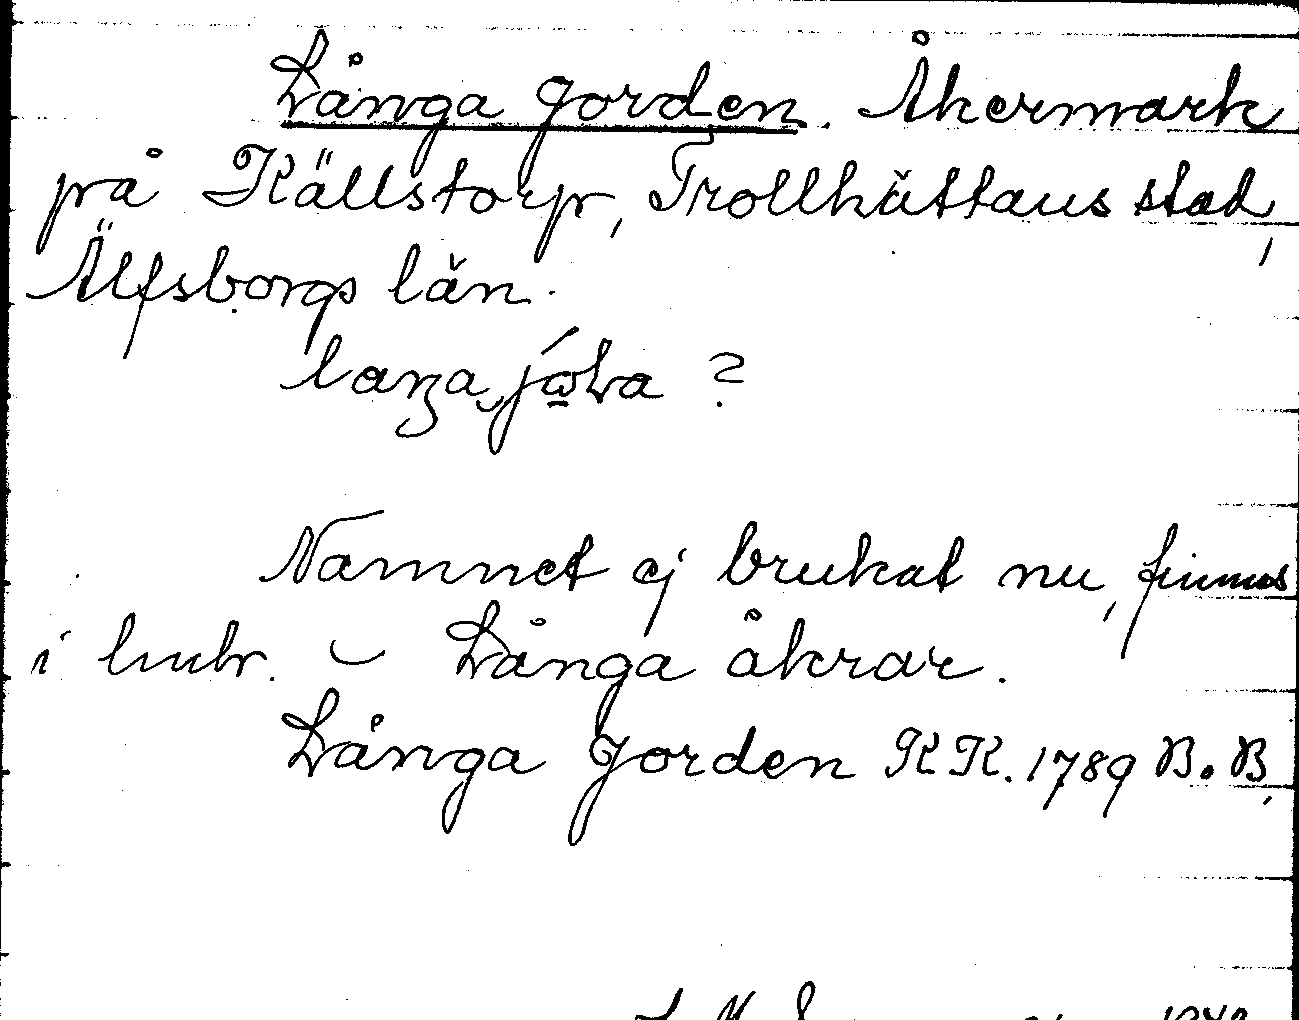 Långa jorden. Åkermark
på Källstorp, Trollhättans stad,
Älfsborgs län.
Namnet ej brukat nu, finnes
i hmbr. – Långa åkrar.
Långa Jorden KK. 1789 B. B.